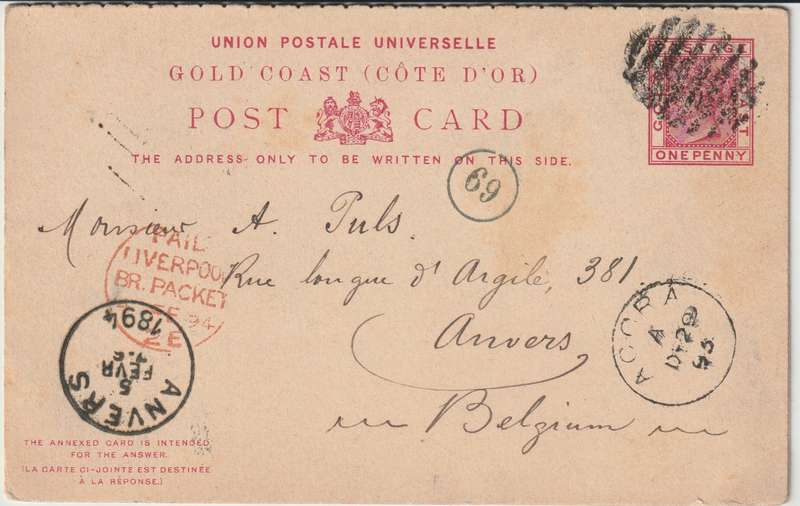 UNION POSTALE UNIVERSELLE
GOLD COAST (CÔTE D'OR)
POST CARD
THE ADDRESS ONLY TO BE WRITTEN ON THIS SIDE.
POSTAGE
ONE PENNY
69
Monsieur A. Puls.
Rue longue d'Argile, 381
Anvers
Belgium
PAID
LIVERPOOL
BR. PACKET
FE 94
2 E
ACCRA
A
DE 29
93
ANVERS
5
FEVR
1894
THE ANNEXED CARD IS INTENDED
FOR THE ANSWER.
(LA CARTE CI-JOINTE EST DESTINÉE
À LA RÉPONSE.)